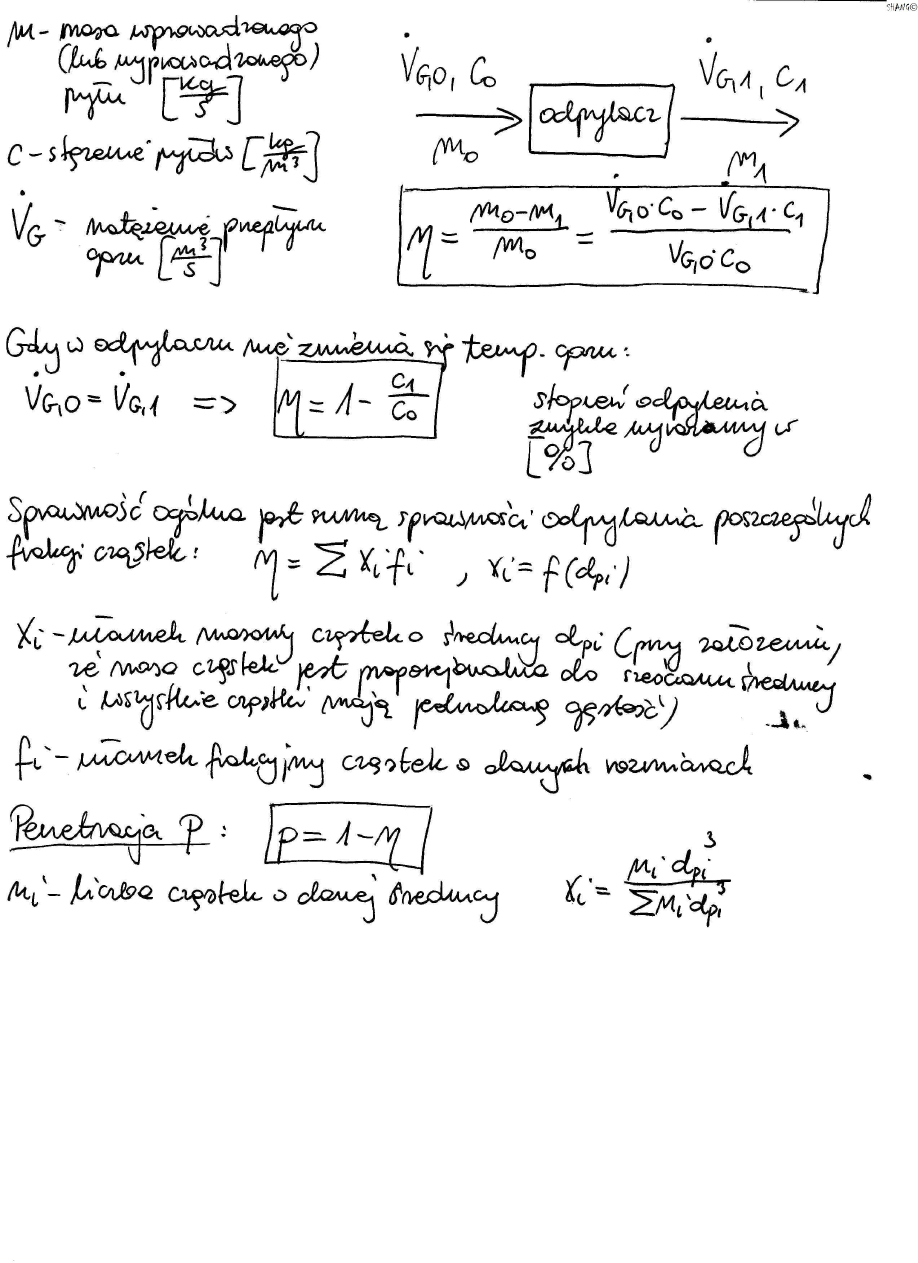 SHANG©
m - masa wprowadzonego
(lub wyprowadzonego)
pyłu [kg/s]
V̇G,0, C0
V̇G,1, C1
odpylacz
m0
m1
C - stężenie pyłów [kg/m³]
V̇G - natężenie przepływu
gazu [m³/s]
η = (m0 - m1)/m0 = (V̇G,0·C0 - V̇G,1·C1)/(VG,0·C0)
Gdy w odpylaczu nie zmienia się temp. gazu:
V̇G,0 = V̇G,1 => η = 1 - C1/C0
stopień odpylenia
zwykle wyrażamy w
[%]
Sprawność ogólna jest sumą sprawności odpylania poszczególnych
frakcji cząstek: η = Σ xi fi , xi = f(dpi)
Xi - ułamek masowy cząstek o średnicy dpi (przy założeniu,
że masa cząstek jest proporcjonalna do sześcianu średnicy
i wszystkie cząstki mają jednakową gęstość)
fi - ułamek frakcyjny cząstek o danych rozmiarach
Penetracja P: p = 1 - η
ni - liczba cząstek o danej średnicy xi = ni dpi³/Σ ni dpi³